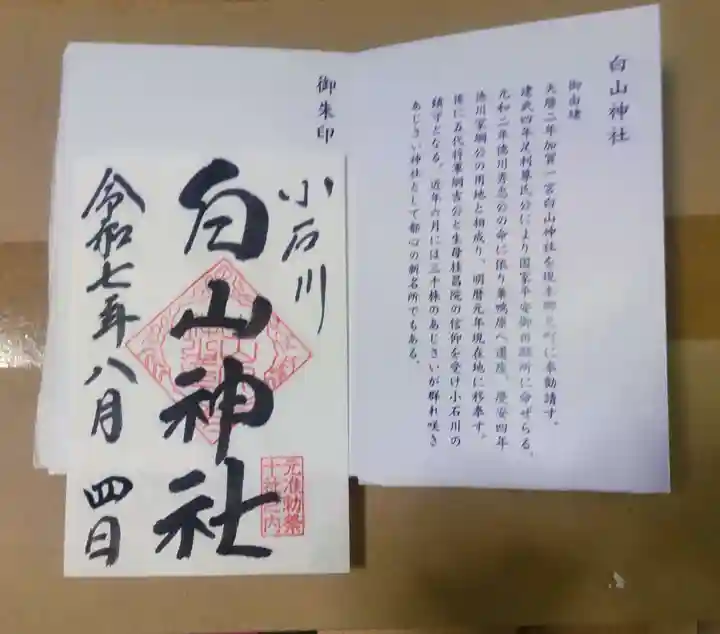 白山神社
御由緒
天暦二年加賀一宮白山神社を現本郷元町に奉勧請す。
建武四年足利尊氏公により国家平安御祈願所に命ぜらる。
元和二年徳川秀忠公の命に依り巣鴨原へ遷座。慶安四年
徳川家綱公の用地と相成り、明暦元年現在地に移奉す。
後に五代将軍綱吉公と生母桂昌院の信仰を受け小石川の
鎮守となる。近年六月には三千株のあじさいが群れ咲き
あじさい神社として都心の新名所でもある。
御朱印
小石川
白山神社
令和七年八月四日
元准勅祭
十社之内